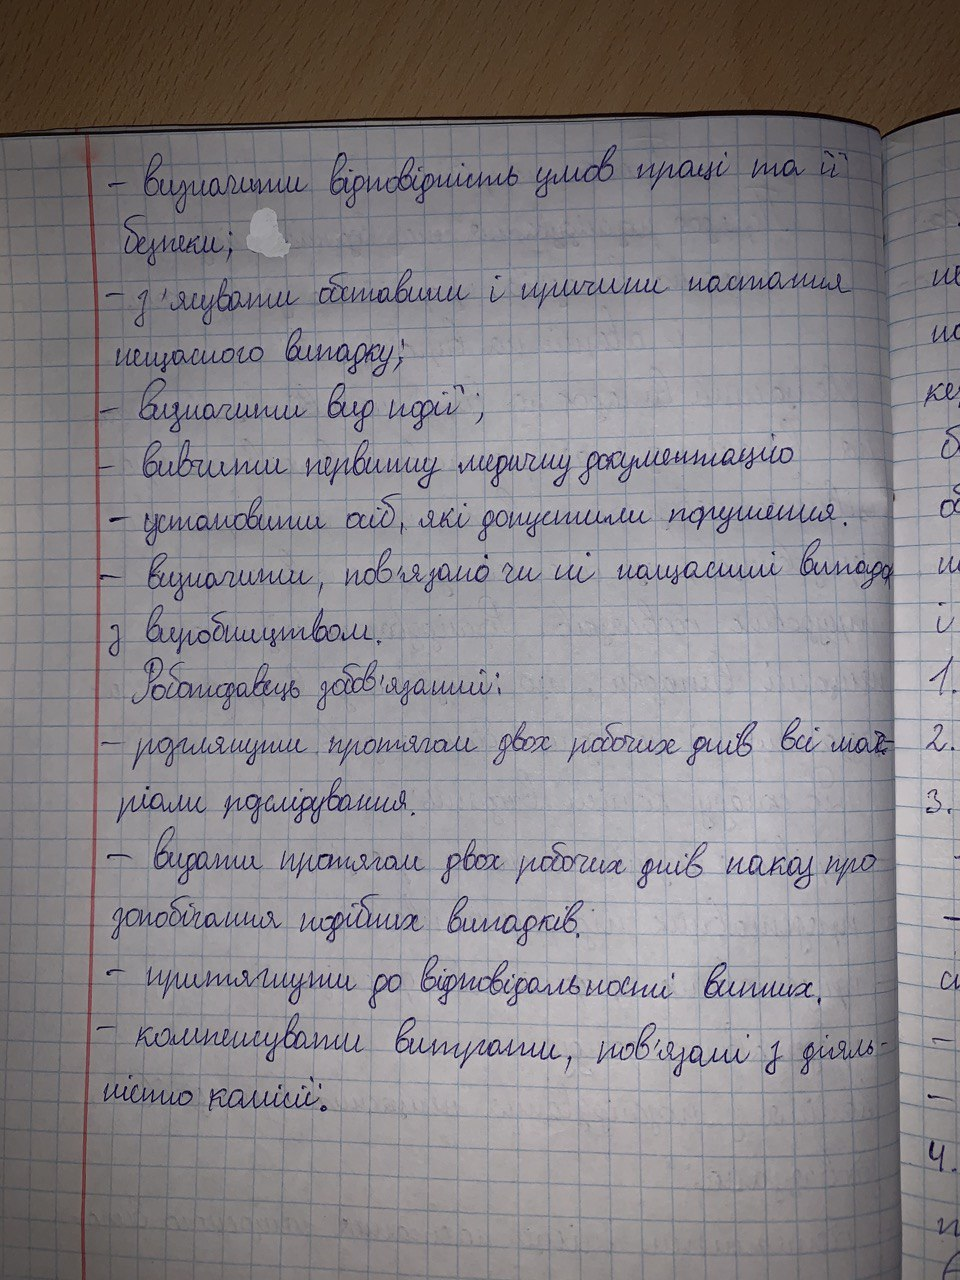 - визначити відповідність умов праці та її
безпеки;
- з'ясувати обставини і причини настання
нещасного випадку;
- визначити вид події;
- вивчити первинну медичну документацію
- установити осіб, які допустили порушення.
- визначити, пов'язано чи ні нещасний випадо
з виробництвом.
Роботодавець зобов'язаний:
- розглянути протягом двох робочих днів всі мате-
ріали розслідування.
- видати протягом двох робочих днів наказ про
запобігання подібних випадків.
- притягнути до відповідальності винних.
- компенсувати витрати, пов'язані з діяль-
ністю комісії.
1.
2.
3.
4.